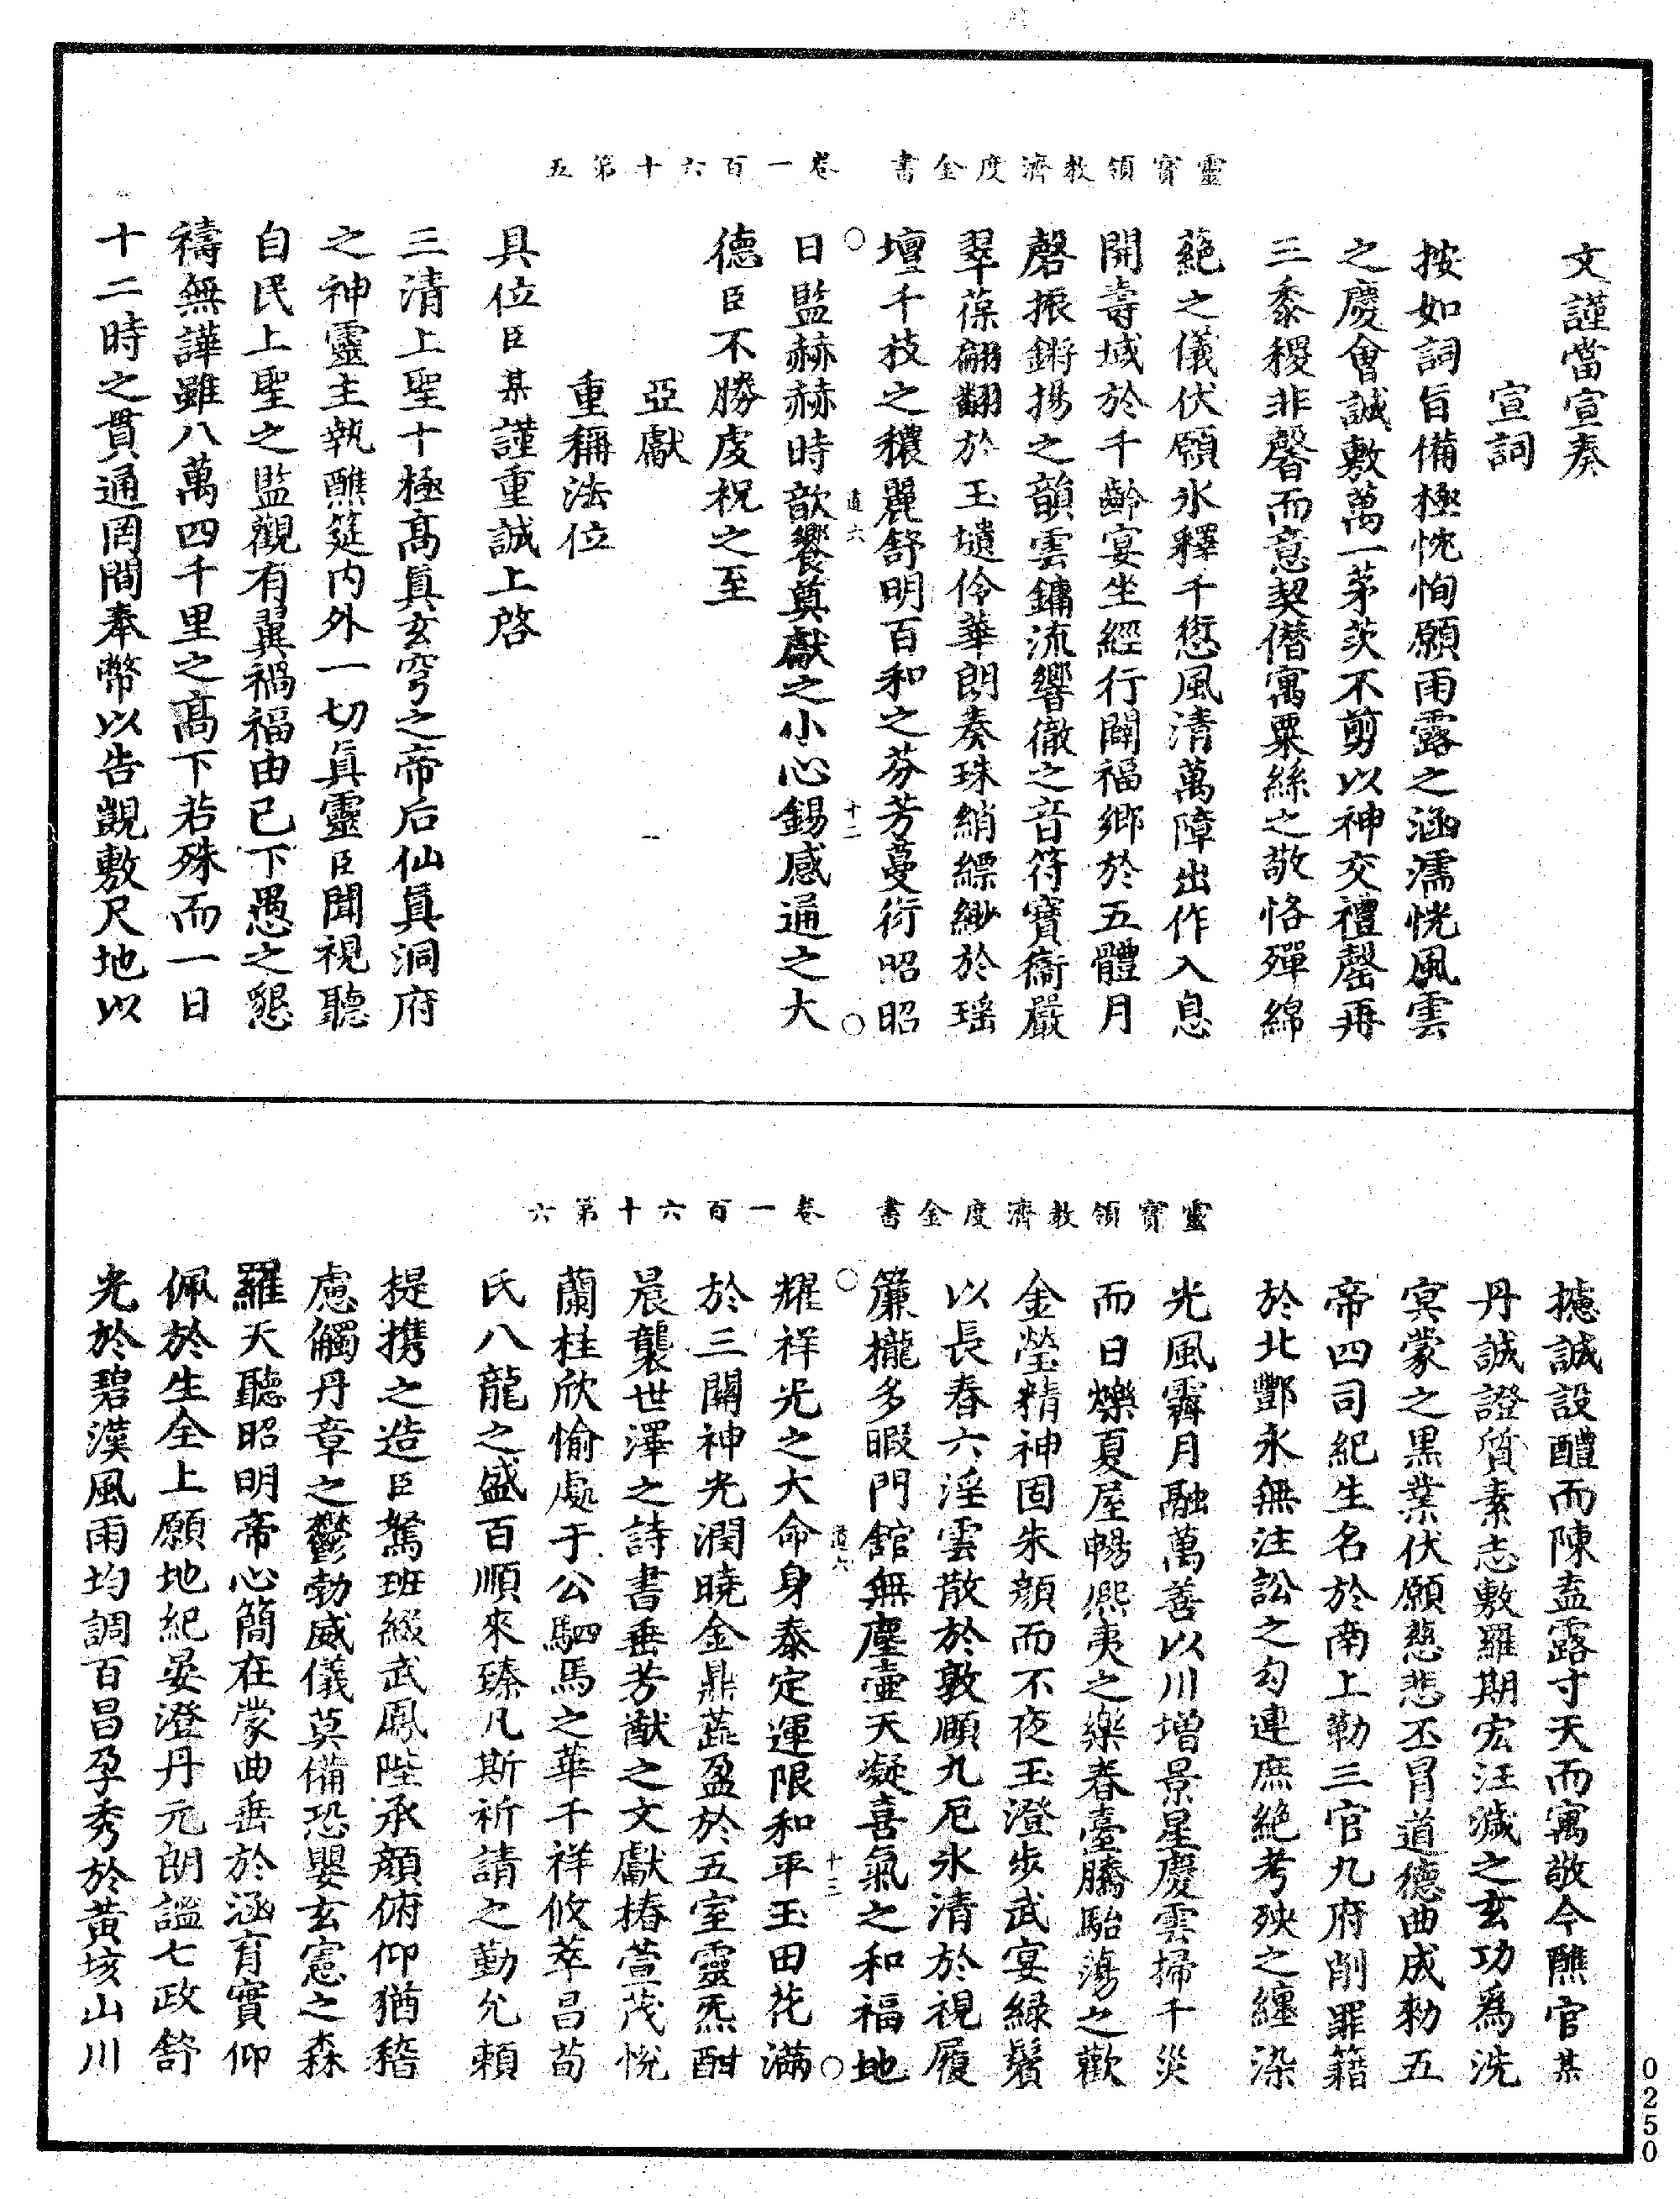 靈寶領教濟度金書 卷一百六十第五
文謹當宣奏
宣詞
按如詞旨備極忱恂願雨露之涵濡恍風雲
之慶會誠敷萬一茅茨不剪以神交禮罄再
三黍稷非馨而意契僭寓粟絲之敬恪殫綿
蕝之儀伏願氷釋千愆風清萬障出作入息
開壽域於千齡宴坐經行闢福鄉於五體月
磬振鏘揚之韻雲鏞流響徹之音符寶衞嚴
翠葆翩翻於玉墟伶華朗奏珠綃縹緲於瑶
壇千技之穠麗舒明百和之芬芳蔓衍昭昭
道六 十二
日監赫赫時歆饗奠獻之小心錫感通之大
德臣不勝虔祝之至
亞獻
重稱法位
具位臣某謹重誠上啓
三清上聖十極高眞玄穹之帝后仙眞洞府
之神靈主執醮筵内外一切眞靈臣聞視聽
自民上聖之監觀有翼禍福由已下愚之懇
禱無譁雖八萬四千里之高下若殊而一日
十二時之貫通罔間奉幣以告覬敷尺地以
靈寶領教濟度金書 卷一百六十第六
攄誠設醴而陳盍露寸天而寓敬今醮官某
丹誠證質素志敷羅期宏汪濊之玄功爲洗
㝠蒙之黒業伏願慈悲丕冒道德曲成勑五
帝四司紀生名於南上勒三官九府削罪籍
於北酆永無注訟之勾連庶絶考殃之纏染
光風霽月融萬善以川增景星慶雲掃千災
而日爍夏屋暢熈夷之樂春臺騰駘蕩之歡
金瑩精神固朱顔而不夜玉澄步武宴緑鬢
以長春六淫雲散於敦頤九厄氷清於視履
簾櫳多暇門館無塵壷天凝喜氣之和福地
道六 十三
耀祥光之大命身泰定運限和平玉田花滿
於三關神光潤曉金鼎蘂盈於五室靈炁酣
晨襲世澤之詩書垂芳猷之文獻椿萱茂悅
蘭桂欣愉處于公駟馬之華千祥攸萃昌荀
氏八龍之盛百順來臻凡斯祈請之勤允頼
提携之造臣駑班綴武鳳陛承顔俯仰猶稽
慮觸丹章之鬱勃威儀莫備恐嬰玄憲之森
羅天聽昭明帝心簡在蒙曲垂於涵育實仰
佩於生全上願地紀晏澄丹元朗謐七政舒
光於碧漢風雨均調百昌孕秀於黄垓山川
0250